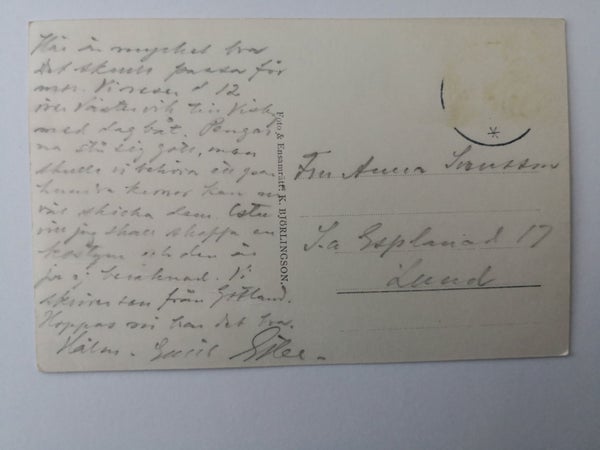 Här är mycket bra
Det skulle passa för
mor. Vi reser d 12
över Västervik till Visby
med dagbåt. Pengar
na stå sig gott, men
skulle vi behöva en
hundra kronor kan
väl skicka dem.
vill jag skall skaffa en
kostym och den är
ja ej beräknad. Vi
skriver sen från Gotland.
Hoppas ni har det bra.
Hälsn.
Foto & Ensamrätt: K. BJÖRLINGSON.
Fru Anna Svensson
S.a Esplanad 17
Lund